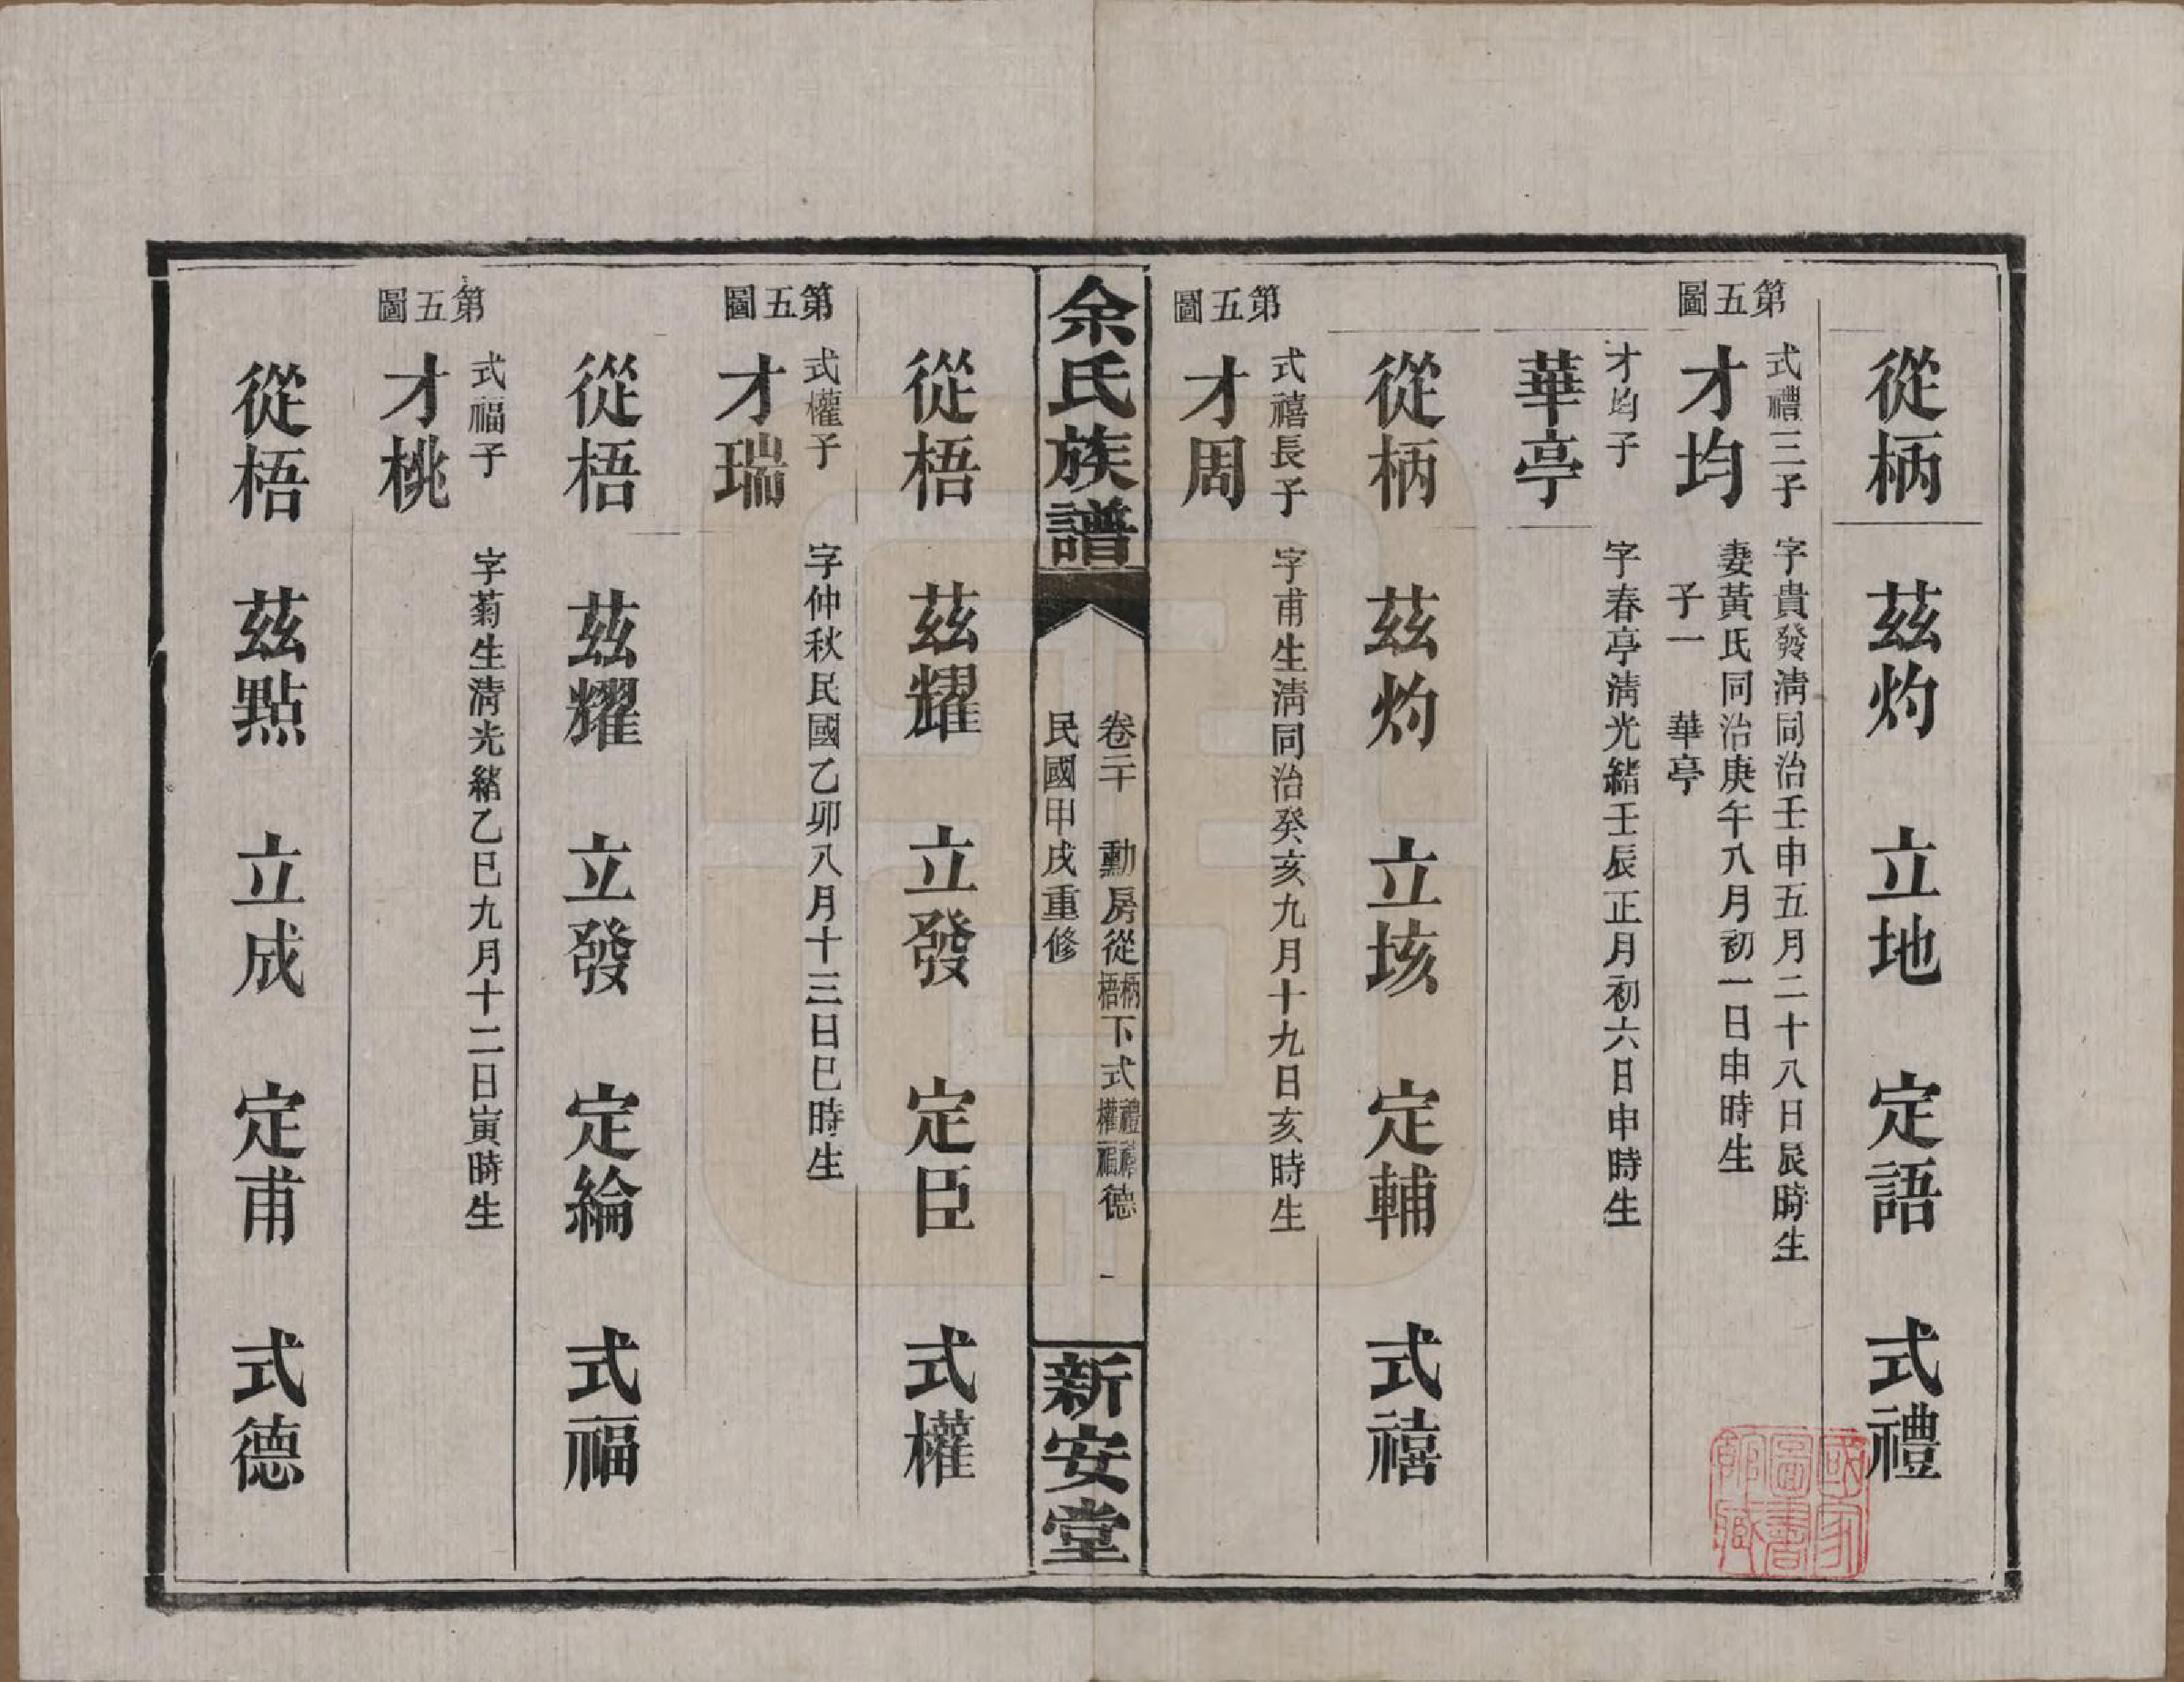 從柄　茲灼　立地　定語　式禮
第五圖
式禮三子
才均
字貴發淸同治壬申五月二十八日辰時生
妻黃氏同治庚午八月初一日申時生
子一　華亭
才均子
華亭
字春亭淸光緒壬辰正月初六日申時生
從柄　茲灼　立垓　定輔　式禧
第五圖
式禧長子
才周
字甫生淸同治癸亥九月十九日亥時生
余氏族譜
卷二十　勳房從柄梧下式禮禧權福德　一
民國甲戌重修
新安堂
從梧　茲耀　立發　定臣　式權
第五圖
式權子
才瑞
字仲秋民國乙卯八月十三日巳時生
從梧　茲耀　立發　定綸　式福
第五圖
式福子
才桃
字菊生淸光緒乙巳九月十二日寅時生
從梧　茲點　立成　定甫　式德
國家圖書館藏